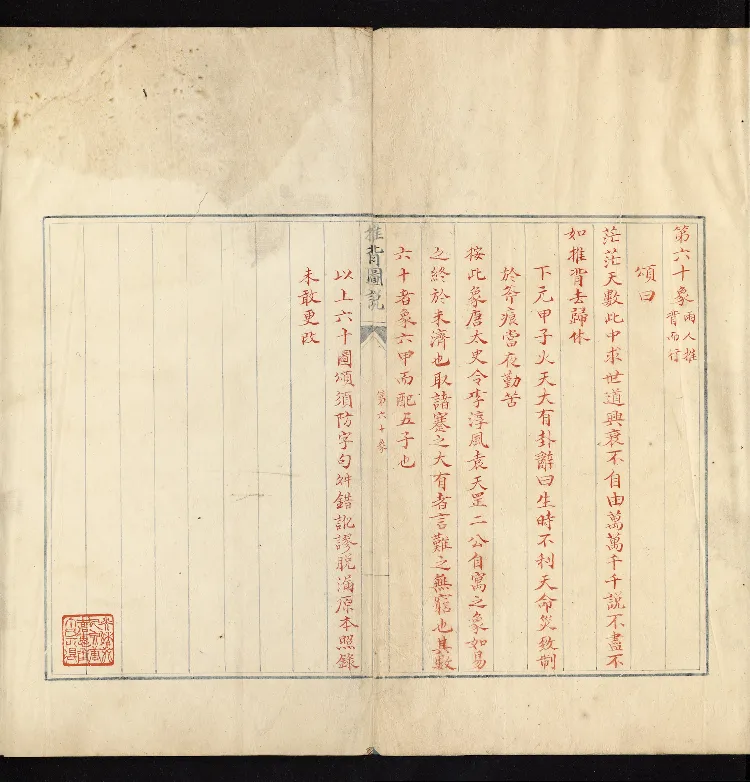 第六十象兩人推背而行
頌曰
茫茫天數此中求世道興衰不自由萬萬千千說不盡不
如推背去歸休
下元甲子火天大有卦辭曰生時不利天命災致制
於斧痕當夜勤苦
按此象唐太史令李淳風袁天罡二公自寓之象如易
之終於未濟也取諸蹇之大有者言難之無窮也其數
六十者象六甲而配五子也
推背圖說
第六十象
以上六十圖頌須防字句舛錯訛謬脫漏原本照錄
未敢更改